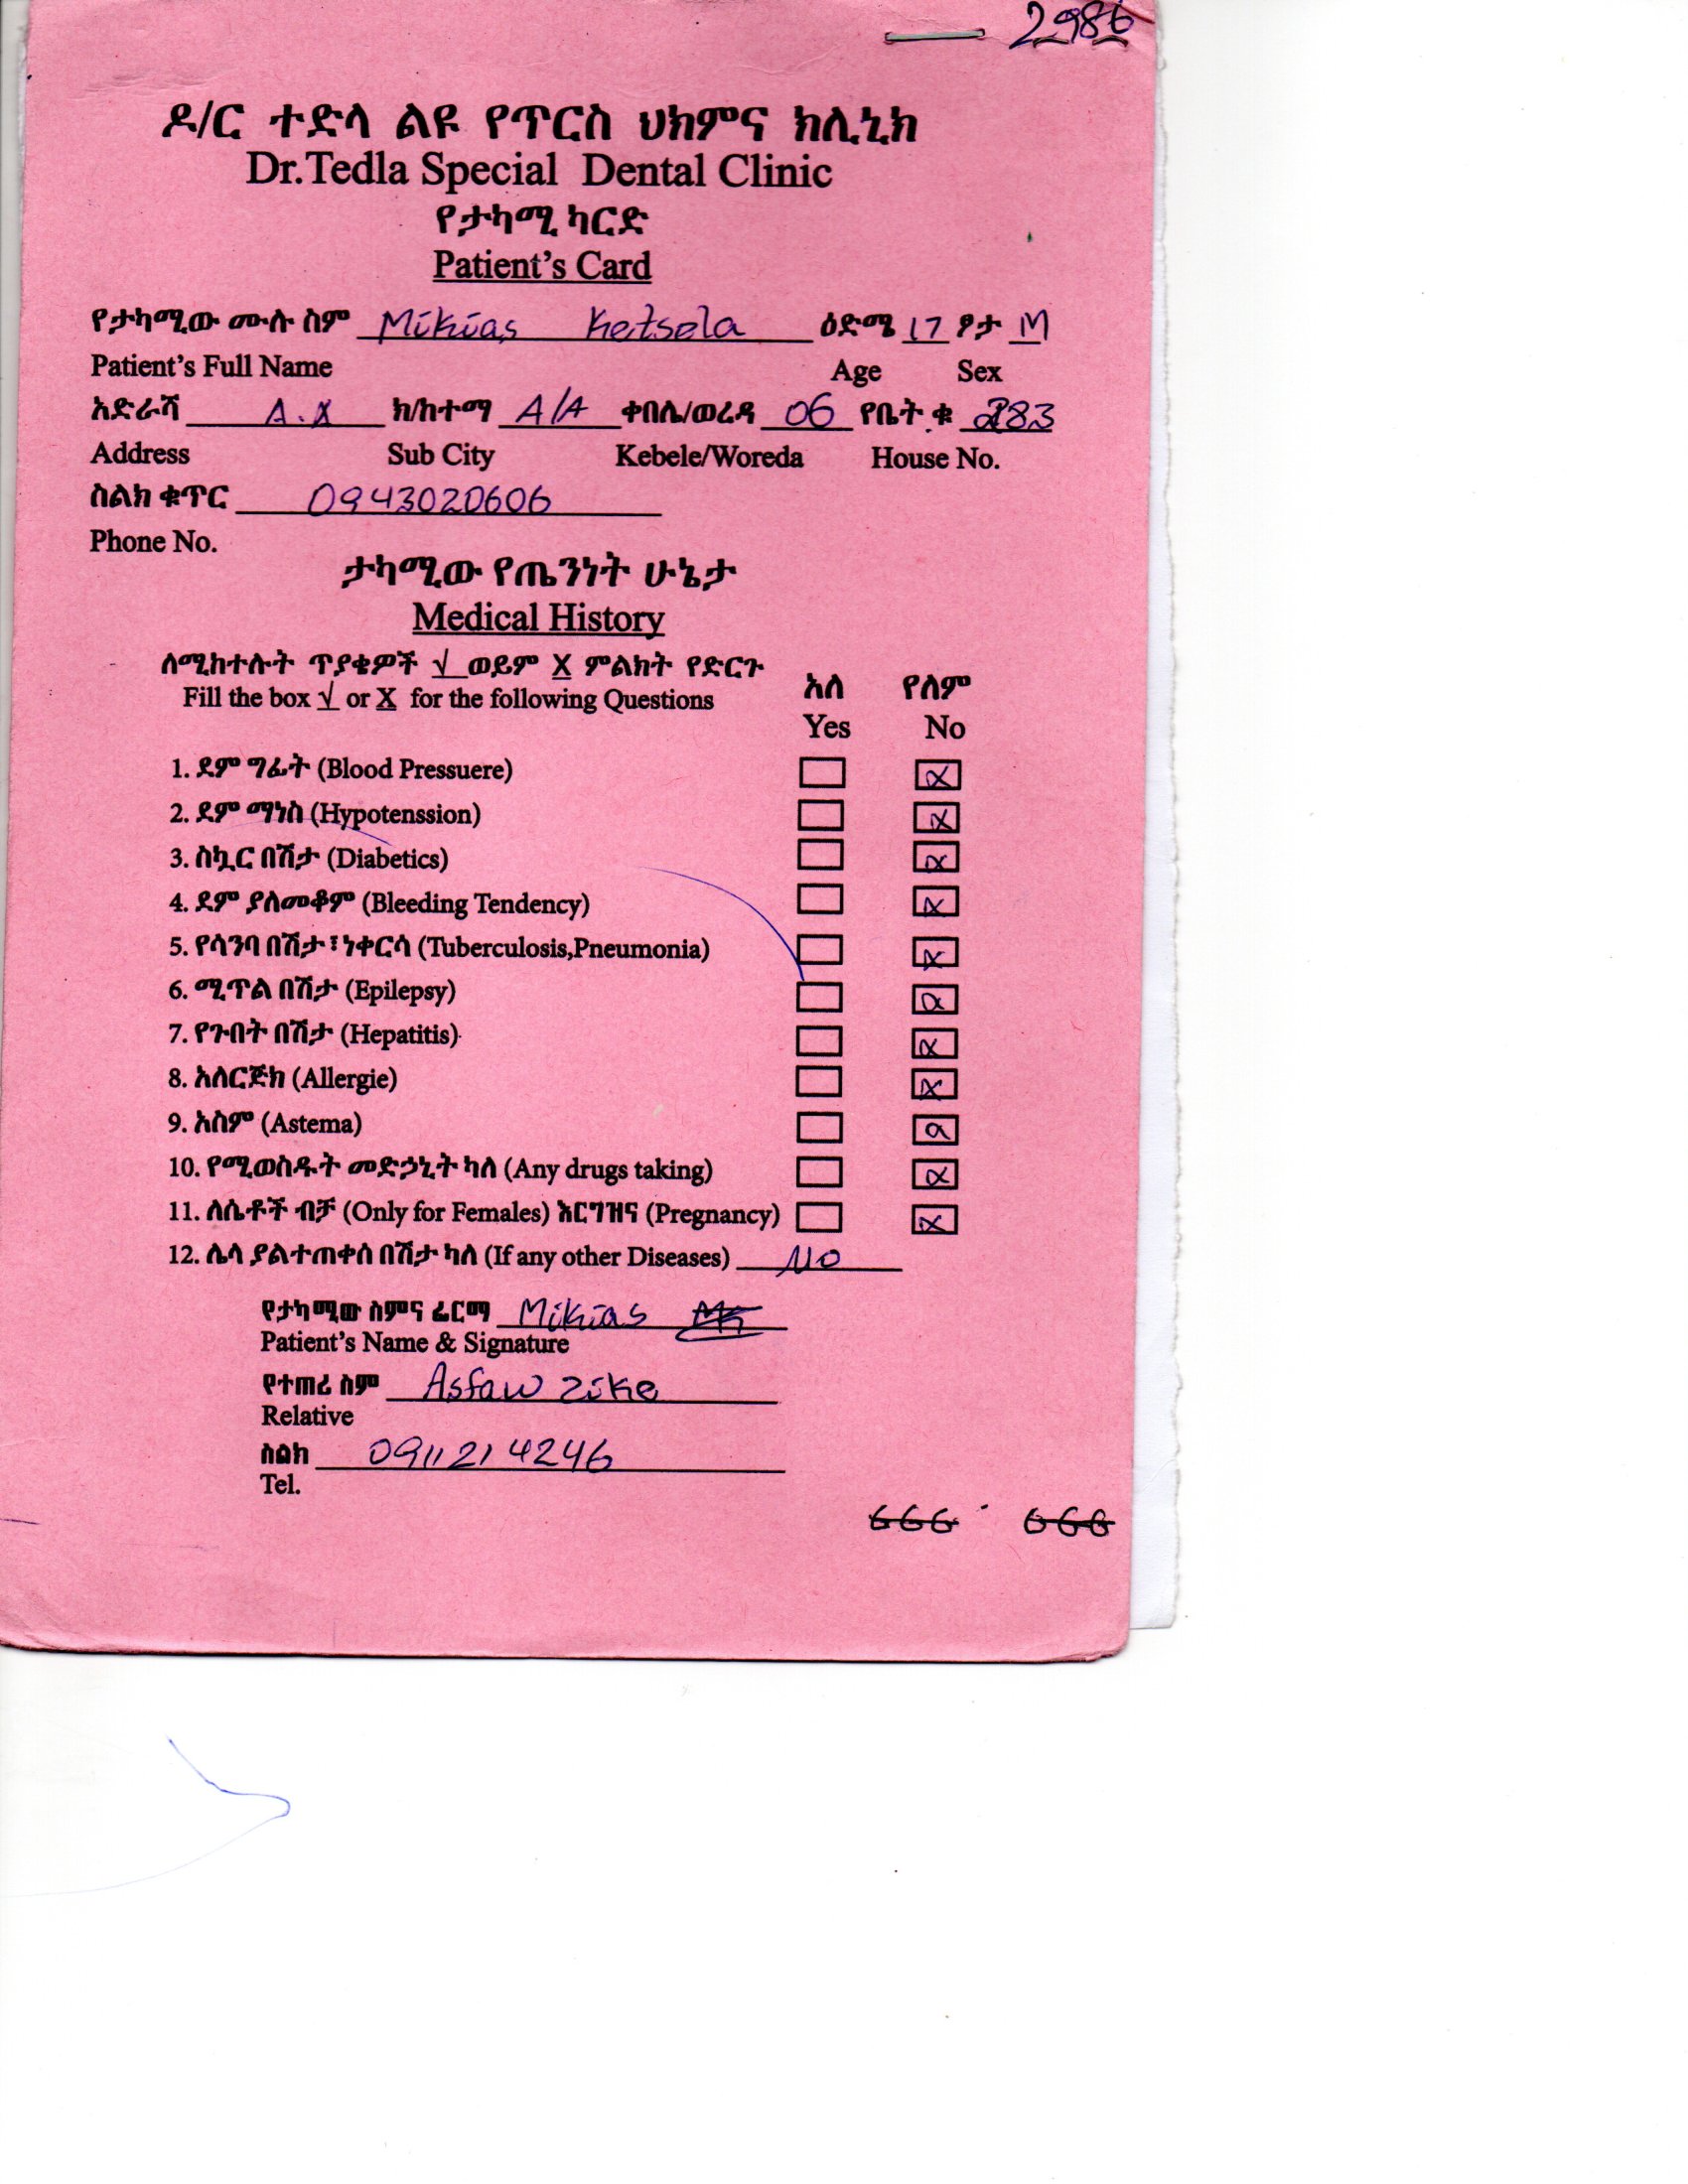 2986
ዶ/ር ተድላ ልዩ የጥርስ ህክምና ክሊኒክ
Dr.Tedla Special Dental Clinic
የታካሚ ካርድ
Patient's Card
የታካሚው ሙሉ ስም Mikias Ketsela ዕድሜ 17 ፆታ M
Patient's Full Name Age Sex
አድራሻ A.A ክ/ከተማ A/A ቀበሌ/ወረዳ 06 የቤት ቁ 283
Address Sub City Kebele/Woreda House No.
ስልክ ቁጥር 0943020606
Phone No.
ታካሚው የጤንነት ሁኔታ
Medical History
ለሚከተሉት ጥያቄዎች √ ወይም X ምልክት የድርጉ
Fill the box √ or X for the following Questions
አለ የለም
Yes No
1. ደም ግፊት (Blood Pressuere) X
2. ደም ማነስ (Hypotenssion) X
3. ስኳር በሽታ (Diabetics) X
4. ደም ያለመቆም (Bleeding Tendency) X
5. የሳንባ በሽታ፣ነቀርሳ (Tuberculosis,Pneumonia) X
6. ሚጥል በሽታ (Epilepsy) X
7. የጉበት በሽታ (Hepatitis) X
8. አለርጅክ (Allergie) X
9. አስም (Astema) X
10. የሚወስዱት መድኃኒት ካለ (Any drugs taking) X
11. ለሴቶች ብቻ (Only for Females) እርግዝና (Pregnancy) X
12. ሌላ ያልተጠቀሰ በሽታ ካለ (If any other Diseases) NO
የታካሚው ስምና ፊርማ Mikias
Patient's Name & Signature
የተጠሪ ስም Asfaw Zike
Relative
ስልክ 0911214246
Tel.
666 666